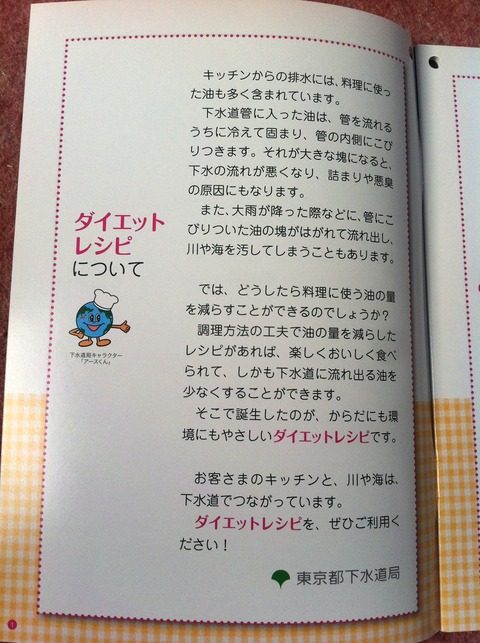 ダイエット
レシピ
について
下水道局キャラクター
「アースくん」
キッチンからの排水には、料理に使っ
た油も多く含まれています。
下水道管に入った油は、管を流れる
うちに冷えて固まり、管の内側にこび
りつきます。それが大きな塊になると、
下水の流れが悪くなり、詰まりや悪臭
の原因にもなります。
また、大雨が降った際などに、管にこ
びりついた油の塊がはがれて流れ出し、
川や海を汚してしまうこともあります。
では、どうしたら料理に使う油の量
を減らすことができるのでしょうか？
調理方法の工夫で油の量を減らした
レシピがあれば、楽しくおいしく食べ
られて、しかも下水道に流れ出る油を
少なくすることができます。
そこで誕生したのが、からだにも環
境にもやさしいダイエットレシピです。
お客さまのキッチンと、川や海は、
下水道でつながっています。
ダイエットレシピを、ぜひご利用く
ださい！
東京都下水道局
1